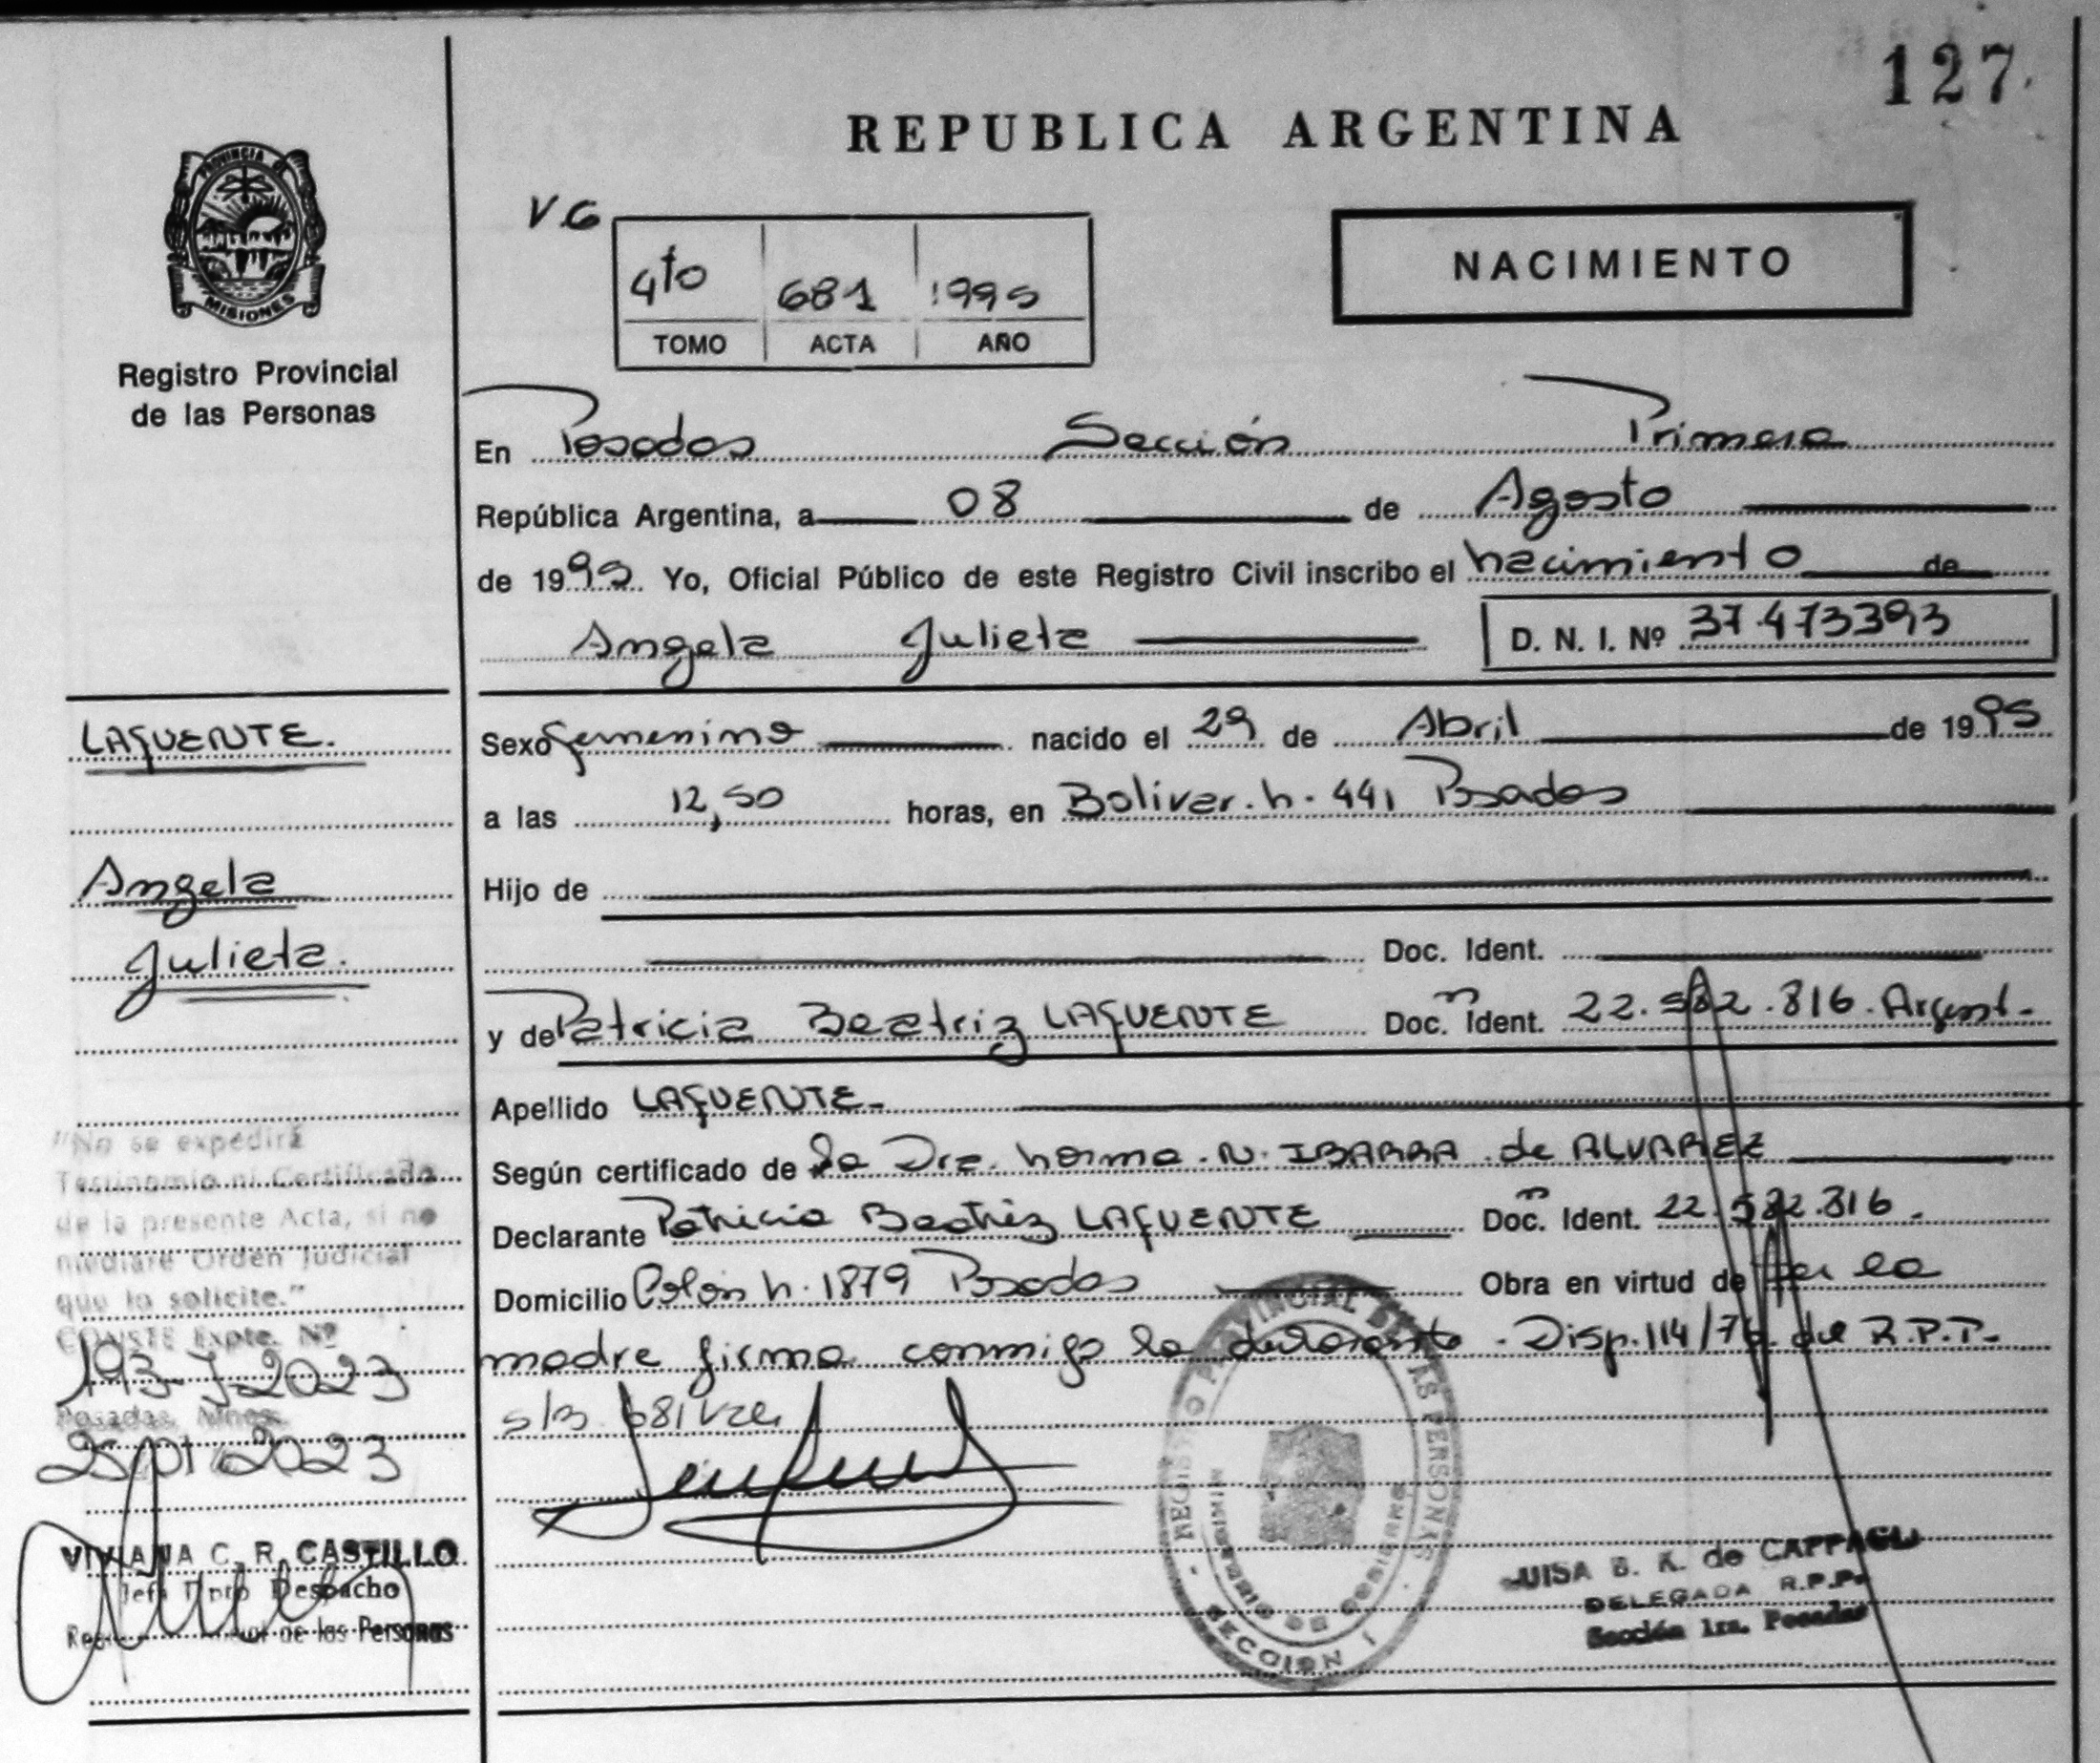 127
REPUBLICA ARGENTINA
PROVINCIA DE
MISIONES
Registro Provincial
de las Personas
V.G
4to 681 1995
TOMO ACTA AÑO
NACIMIENTO
En Posadas Sección Primera
República Argentina, a 08 de Agosto
de 1995 Yo, Oficial Público de este Registro Civil inscribo el nacimiento de
Angela Julieta D. N. I. Nº 37.473393
LAFUENTE.
Angela
Julieta.
Sexo femenino nacido el 29 de Abril de 1995
a las 12,50 horas, en Bolivar. n. 441 Posadas
Hijo de
Doc. Ident.
y de Patricia Beatriz LAFUENTE Doc. Ident. 22.582.816. Argent.
Apellido LAFUENTE.
Según certificado de la Dra. Norma. N. IBARRA de ALVAREZ
Declarante Patricia Beatriz LAFUENTE Doc. Ident. 22.582.816.
Domicilio Colón n. 1879 Posadas Obra en virtud de ser la
madre firma conmigo la declarante. Disp. 114/76. del R.P.P.
"No se expedirá
Testimonio ni Certificado
de la presente Acta, si no
mediare Orden Judicial
que lo solicite."
CONSTE Expte. Nº
193-J-2023
Posadas, Mnes.
2023
VIVIANA C. R. CASTILLO
Jefa Dpto Despacho
de las Personas
REGISTRO PROVINCIAL DE LAS PERSONAS
MINISTERIO DE GOBIERNO
SECCION I
LUISA B. K. de CAPPAGLI
DELEGADA R.P.P.
Sección 1ra. Posadas